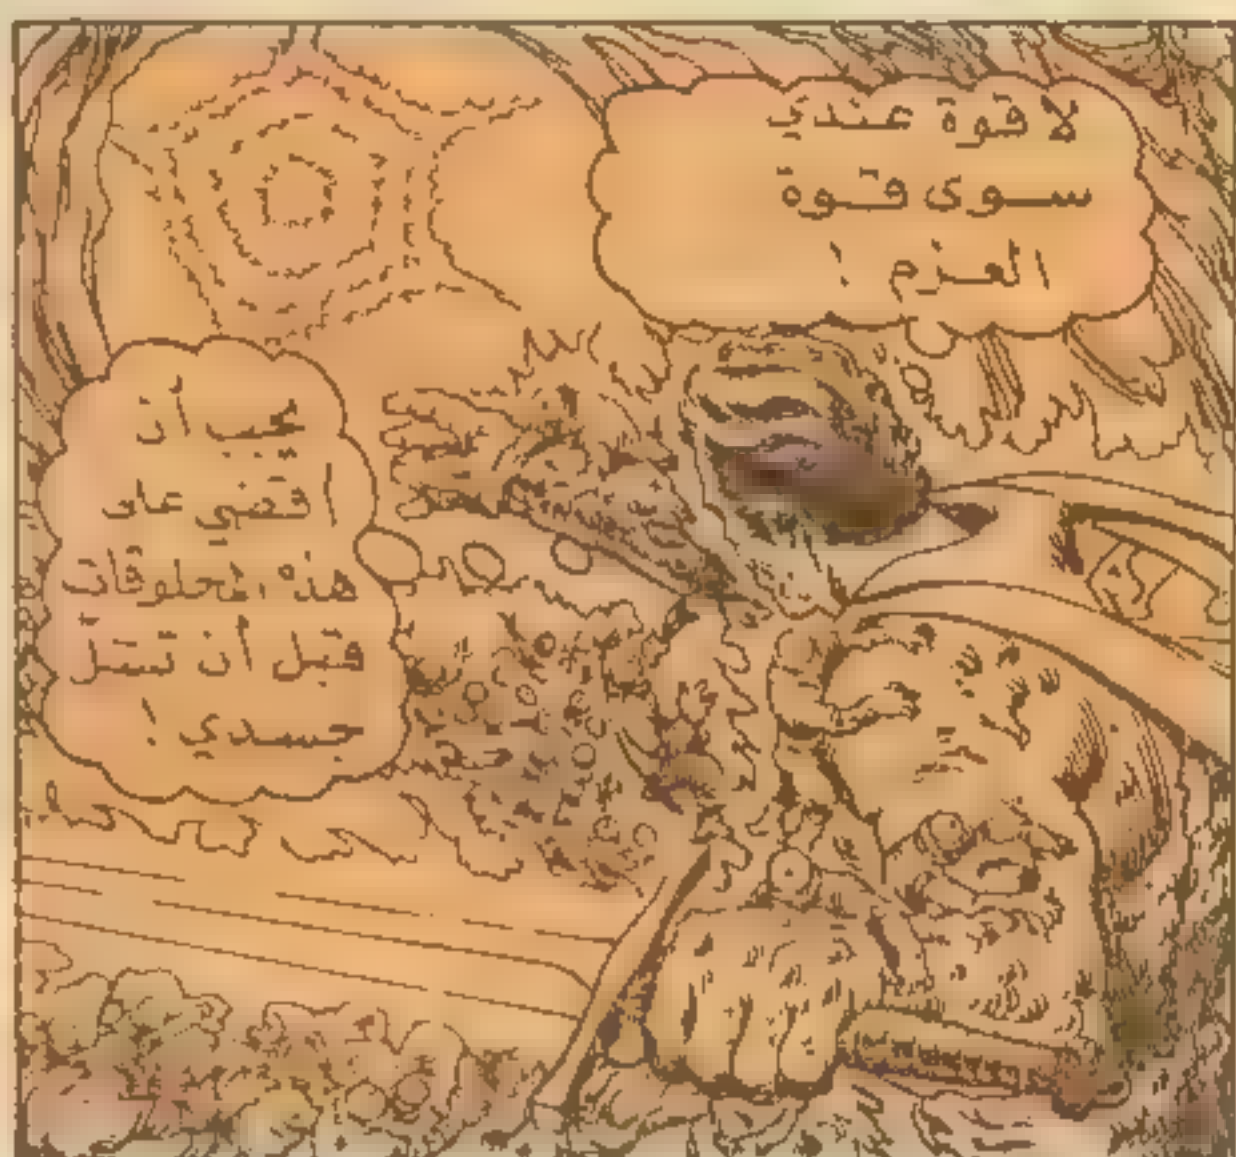 لا قوة عندي
سوى قوة
العزم !
يجب أن
اقضي على
هذه المخلوقات
قبل أن تشل
جسدي !